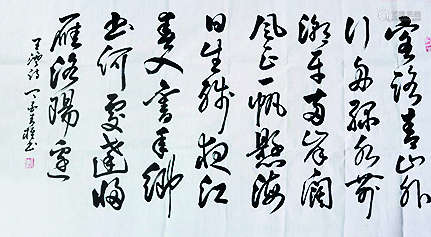 客路青山外
行舟綠水前
潮平兩岸闊
風正一帆懸海
日生殘夜江
春入舊年鄉
書何處達歸
雁洛陽邊
王灣詩 書